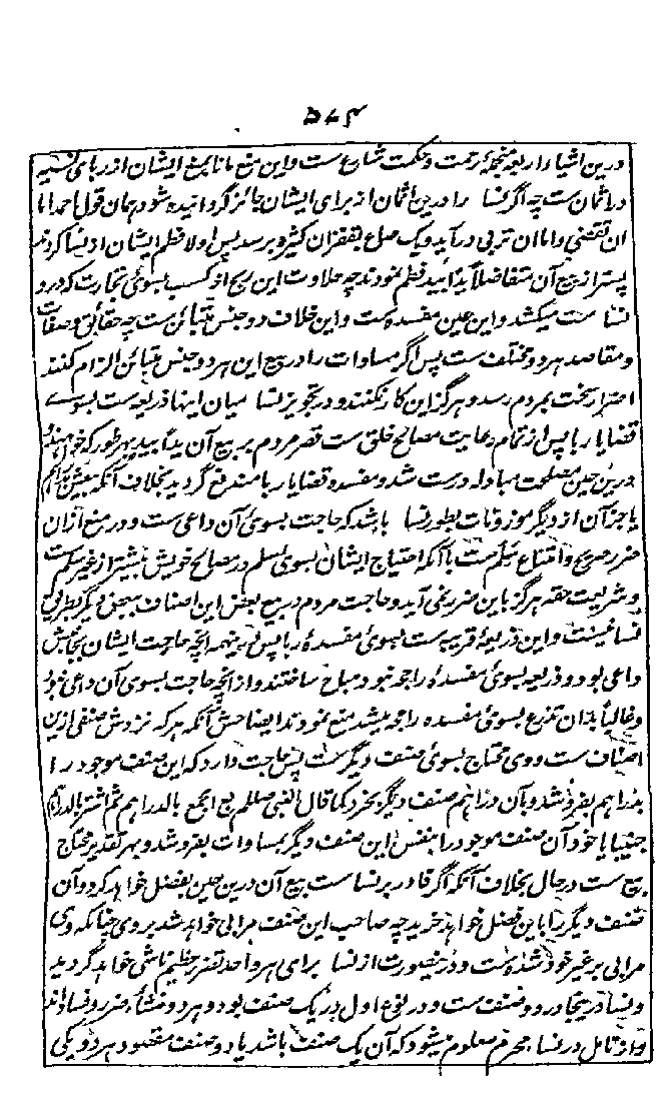 ۵۷۴
درین اشیاء اربعه نتیجهٔ رحمت و حکمت شارع ست و این منع مانا بمنع ایشان از ربای نسیه
در اثمان ست چه اگر نسا را درین اثمان از برای ایشان جائز گردانیده شود همان قول اما
ان تقضی و اما ان تربی در آید و یک صاع بقفزان کثیره برسد پس اولا فطم ایشان از نسا کردند
پستر از بیع آن متفاضلاً یداً بید فطم نمودند چه حلاوت این ربح از کسب بسوئی تجارت که درو
نسا ست میکشد و این عین مفسده ست و این خلاف دو جنس متبائن ست چه حقائق و صفات
و مقاصد هر دو مختلف ست پس اگر مساوات را در بیع این هر دو جنس متبائن الزام کنند
اضرار سخت بمردم رسد و هرگز این کار نکنند و در تجویز نسا میان اینها ذریعه ست بسوے
قضایا ربا پس از تمام رعایت مصالح خلق ست قصر مردم بر بیع آن یداً بید بهر طور که خواهند
درین حین مصلحت مبادله درست شد و مفسده قضایا ربا مندفع گردید بخلاف آنکه بیعش بدراهم
یا جز آن از دیگر موزونات بطور نسا باشد که حاجت بسوئی آن داعی ست و در منع ازان
ضرر صریح و امتناع سلم ست با آنکه احتیاج ایشان بسوی سلم در مصالح خویش بیشتر از غیر سلم ست
و شریعت حقه هرگز باین ضرر نمی آید و حاجت مردم در بیع بعض این اصناف ببعض دیگر بطریق
نسا نیست و این ذریعهٔ قریبه ست بسوئی مفسدهٔ ربا پس درینهمه انچه حاجت ایشان بجانبش
داعی بود و ذریعه بسوئی مفسدهٔ راجحه نبود مباح ساختند و از انچه حاجت بسوی آن داعی نبود
و غالباً بدان تذرع بسوئی مفسده راجحه میشد منع نمودند ایضاحش آنکه هر که نزدش صنفی ازین
اصناف ست و وی محتاج بسوئی صنف دیگر ست پس حاجت دارد که این صنف موجود را
بدراهم بفروشد و بآن دراهم صنف دیگر بخرد کما قال النبی صلعم بع الجمع بالدراهم ثم اشتر بالدراهم
جنیبا یا خود آن صنف موجود را بنفس این صنف دیگر بمساوات بفروشد و بهر تقدیر محتاج
بیع ست در حال بخلاف آنکه اگر قادر بر نسا ست بیع آن درین حین بفضل خواهد کرد و آن
صنف دیگر را باین فضل خواهد خرید چه صاحب این صنف مرابی خواهد شد بر وی چنانکه وی
مرابی بر غیر خود شده ست و درینصورت از نسا برای هر واحد تضرر عظیم ناشی خواهد گردید
و نسا درینجا در دو صنف ست و در نوع اول در یک صنف بود و هر دو منشاء ضرر و فساد اند
و از تامل در نسا محرم معلوم میشود که آن یک صنف باشد یا دو صنف مقصود هر دو یکی